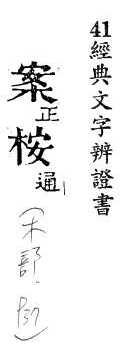 41經典文字辨證書
案正桉通
(木部